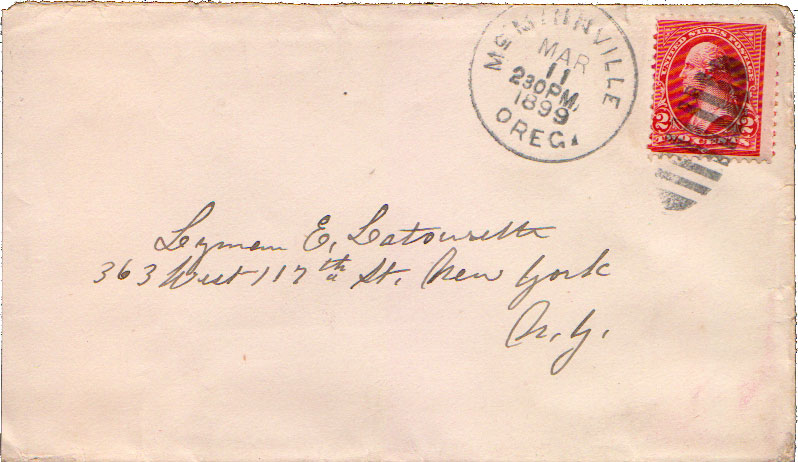 McMINNVILLE
MAR
11
230PM.
1899
OREG.
UNITED STATES POSTAGE
2 2
Lyman E. Latourette
363 West 117th St. New York
N.Y.